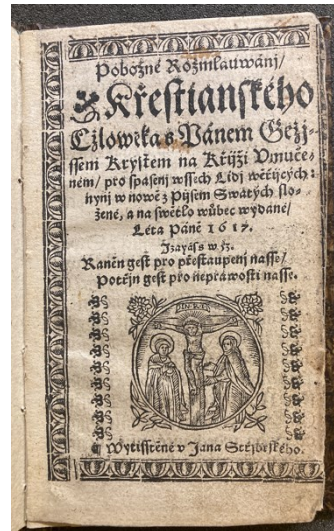 Pobožné Rozmlauwánj/
Křestianského
Cžlowěka s Pánem Gežj-
ssem Krystem na Křjži Vmuče-
ném/ pro spasenj wssech Lidj wěřjcých:
nynj w nowě z Pjsem Swatých slo-
žené, a na swětlo wůbec wydané/
Léta Páně 1617.
Izayáss w 53.
Raněn gest pro přestaupenj nasse/
Potřjn gest pro nepráwosti nasse.
Wytisstěné v Jana Stržjbrského.